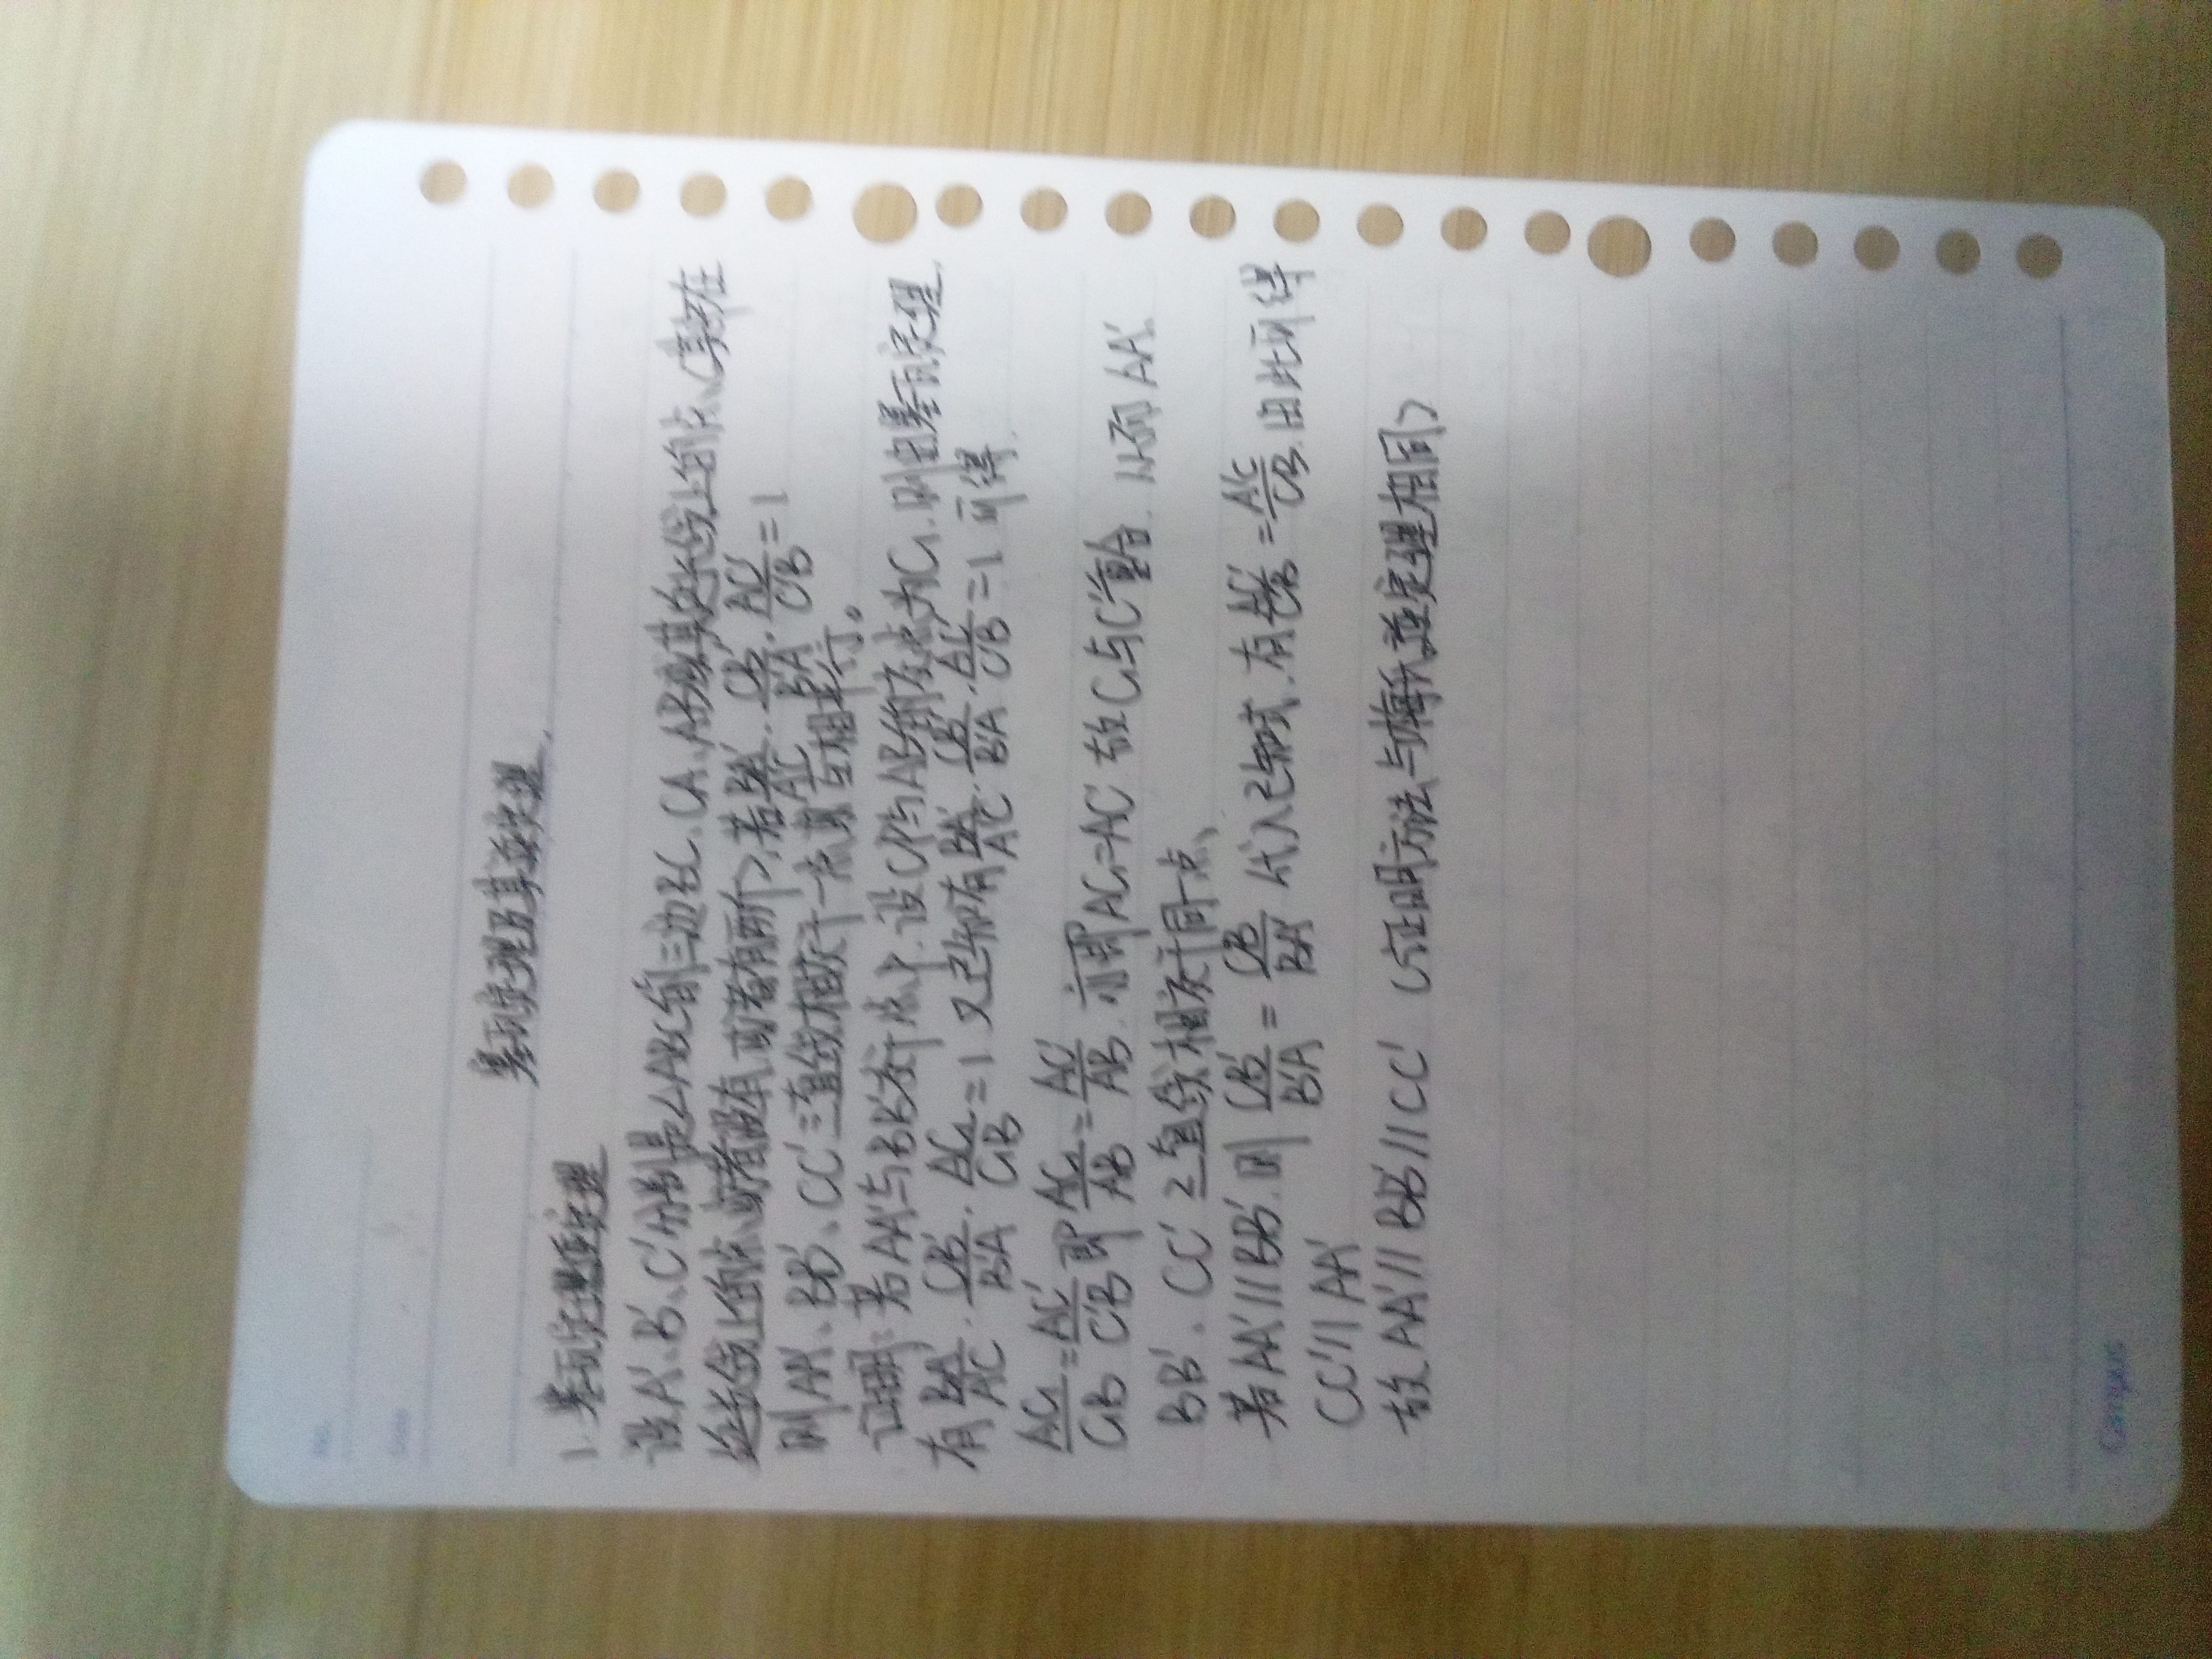 No.
Date
塞瓦定理及其逆定理.
1. 塞瓦定理逆定理
设A'、B'、C'分别是△ABC的三边BC、CA、AB或其延长线上的点、(其中在
延长线上的点、或者没有、或者有两个), 若 BA'/A'C · CB'/B'A · AC'/C'B = 1
则AA'、BB'、CC'三直线相交于一点或互相平行。
证明: 若AA'与BB'交于点P, 设CP与AB的交点为C₁, 则由塞瓦定理
有 BA'/A'C · CB'/B'A · AC₁/C₁B = 1 又已知有 BA'/A'C · CB'/B'A · AC'/C'B = 1 可得.
AC₁/C₁B = AC'/C'B 即 AC₁/AB = AC'/AB. 亦即AC₁=AC' 故C₁与C'重合. 从而AA'.
BB'、CC' 三直线相交于同一点、
若AA'//BB'. 则 CB'/B'A = CB/BA' 代入已知式. 有 AC'/C'B = A'C/CB. 由此可得
CC'//AA'
故AA'//BB'//CC' (证明方法与梅氏逆定理相同)
Campus